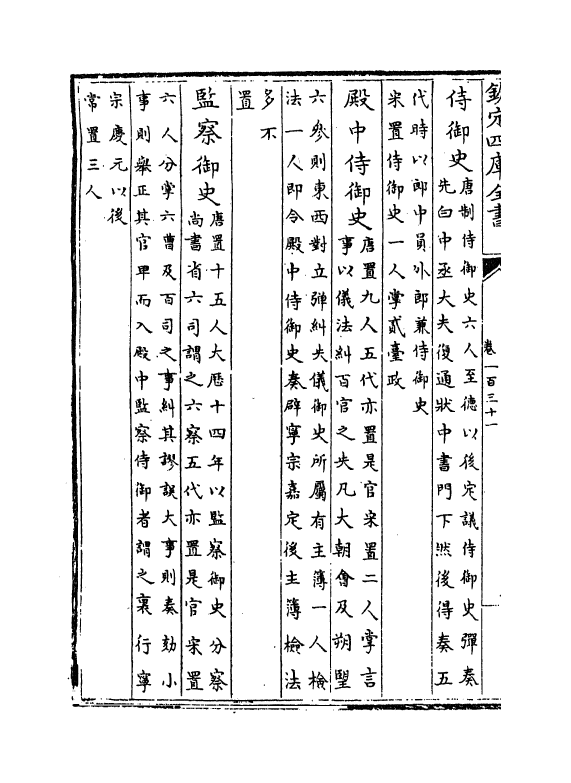 欽定四庫全書
卷一百三十一
侍御史唐制侍御史六人至德以後定議侍御史彈奏
先白中丞大夫復通狀中書門下然後得奏五
代時以郎中員外郎兼侍御史
宋置侍御史一人掌貳臺政
殿中侍御史唐置九人五代亦置是官宋置二人掌言
事以儀法糾百官之失凡大朝會及朔望
六參則東西對立彈糾失儀御史所屬有主簿一人檢
法一人即令殿中侍御史奏辟寧宗嘉定後主簿檢法
多不
置
監察御史唐置十五人大厯十四年以監察御史分察
尚書省六司謂之六察五代亦置是官宋置
六人分掌六曹及百司之事糾其謬誤大事則奏劾小
事則舉正其官卑而入殿中監察侍御者謂之裏行寧
宗慶元以後
常置三人